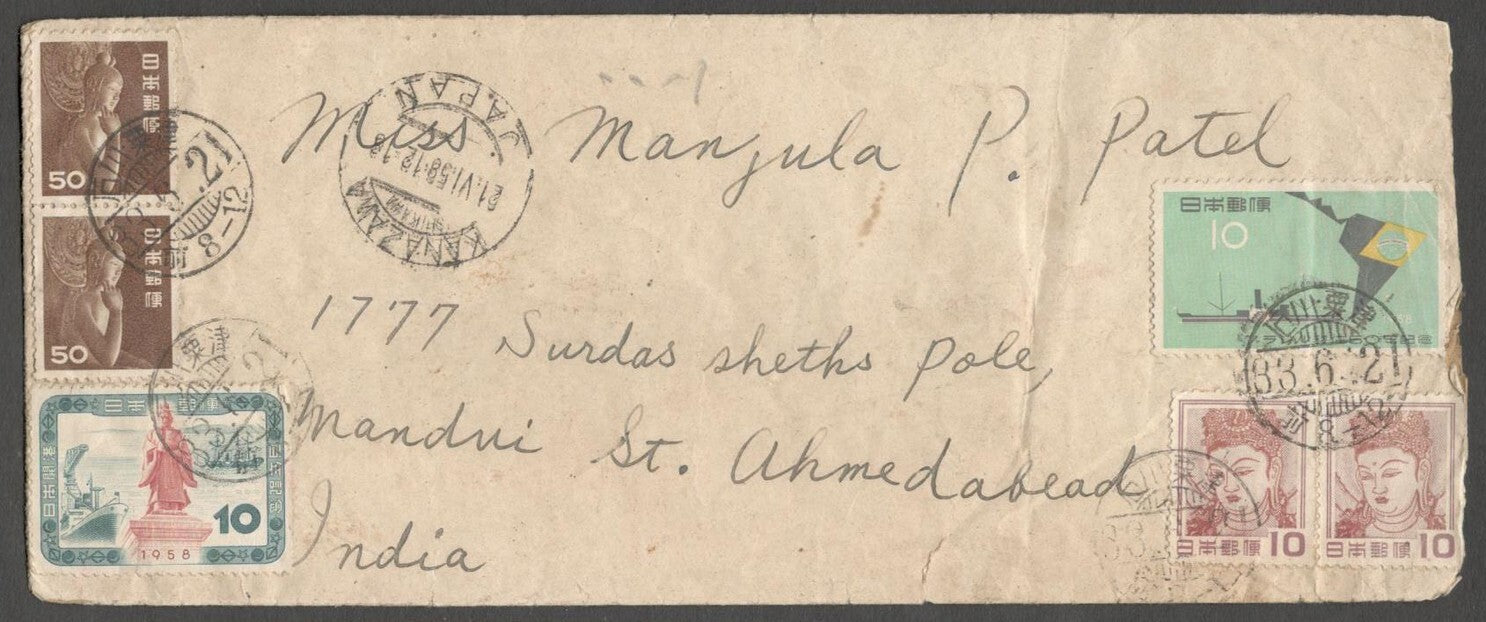 日本郵便
50
日本郵便
50
1958
10
KANAZAWA
21.VI.58.12-18
JAPAN
Miss Manjula P. Patel
1777 Surdas sheths pole,
Mandvi St. Ahmedabead
India
日本郵便
10
石川粟津
33.6.21
前8-12
日本郵便 10
日本郵便 10